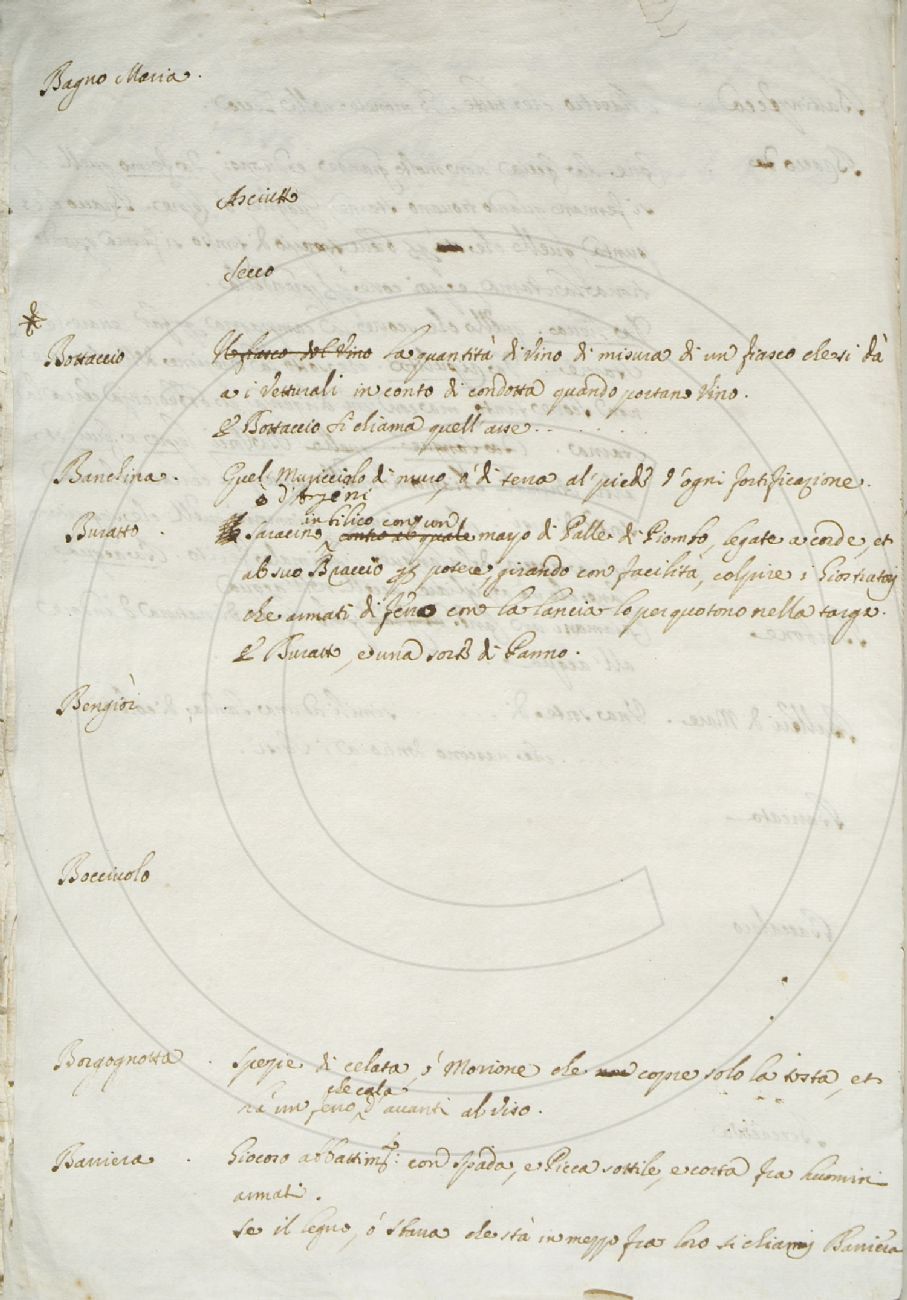 Bagno Maria.
Asciutto
secco
Bottaccio Il fiasco del Vino La quantità di vino di misura di un fiasco che si dà
a i Vetturali in conto di condotta quando portano Vino.
E Bottaccio si chiama quell' arse . . . . . .
Banchina. Quel Muricciolo di muro, ó di terra al piede d'ogni fortificazione.
o d'Argeni
Buratto. in bilico con un
Saracino contro al quale mazo di Palle di Piombo, legate a corde, et
al suo Braccio per potere, girando con facilità, colpire i Giostratori
che armati di ferro con la lancia lo perquotono nella targa.
E Buratto, è una sorte di Panno.
Bengiòi
Bocciuolo
Borgognotta. Spezie di celata, ó Morione che non copre solo la testa, et
che cala
hà un ferro d'avanti al viso.
Barriera. Giocoso abbattim.to: con spada, e Picca sottile, e corta fra huomini
armati.
se il legno, ó sbarra che stà in mezzo fra loro si chiami Barriera